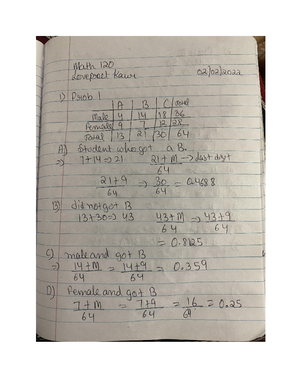 Math 120
Lovepreet Kaur 02/02/2022
1) Prob 1
A B C Total
Male 4 14 18 36
Female 9 7 12 28
Total 13 21 30 64
A) Student who got a B.
=> 7+14 => 21 21+M/64 -> last digit
21+9/64 => 30/64 = 0.4688
B) did not got B
13+30 => 43 43+M/64 => 43+9/64
= 0.8125
C) male and got B
=> 14+M/64 = 14+9/64 = 0.359
D) Female and got B
7+M/64 = 7+9/64 = 16/64 = 0.25